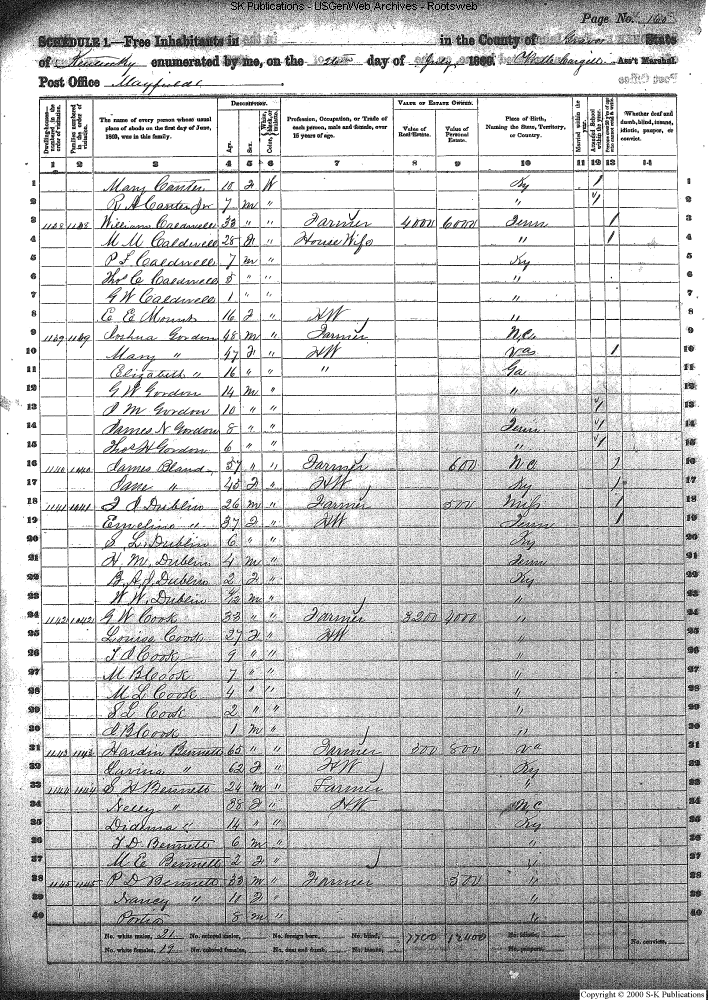 SK Publications - USGenWeb Archives - Rootsweb
Page No. 160
SCHEDULE 1.—Free Inhabitants in in the County of Graves State
of Kentucky enumerated by me, on the day of July, 1860. Ass't Marshal.
Post Office Mayfield
Dwelling-houses—numbered in the order of visitation.
Families numbered in the order of visitation.
The name of every person whose usual place of abode on the first day of June, 1860, was in this family.
DESCRIPTION.
Age.
Sex.
Color, White, black, or mulatto.
Profession, Occupation, or Trade of each person, male and female, over 15 years of age.
VALUE OF ESTATE OWNED.
Value of Real Estate.
Value of Personal Estate.
Place of Birth, Naming the State, Territory, or Country.
Married within the year.
Attended School within the year.
Whether deaf and dumb, blind, insane, idiotic, pauper, or convict.
1 2 3 4 5 6 7 8 9 10 11 12 13 14
1 Mary Canter 10 F W Ky 1
2 R A Canter Jr 7 m " " 1
3 1138 1138 William Caldwell 33 " " Farmer 4000 6000 Tenn 1
4 M M Caldwell 28 F " House Wife " 1
5 P L Caldwell 7 m " Ky
6 Thos C Caldwell 5 " " "
7 G W Caldwell 1 " " "
8 E E Mount 16 F " HW "
9 1139 1139 Joshua Gordon 48 m " Farmer N.C.
10 Mary " 47 F " HW Va 1
11 Elizabeth " 16 " " " Ga
12 G W Gordon 14 m " "
13 J M Gordon 10 " " " 1
14 James N Gordon 8 " " Tenn 1
15 Thos H Gordon 6 " " " 1
16 1140 1140 James Bland 57 " " Farmer 600 N.C. 1
17 Jane " 45 F " HW Ky 1
18 1141 1141 F J Dublin 26 m " Farmer 500 Miss 1
19 Emeline " 37 F " HW Tenn 1
20 S L Dublin 6 " " Ky
21 H. M. Dublin 4 m " Tenn
22 B. A. J Dublin 2 F " Ky
23 W. W. Dublin m " "
24 1142 1142 G W Cook 33 " " Farmer 3200 4000 "
25 Louisa Cook 27 F " HW "
26 T J Cook 9 " " "
27 M B Cook 7 " " "
28 M L Cook 4 " " "
29 S L Cook 2 " " "
30 J B Cook 1 m " "
31 1143 1143 Hardin Bennett 65 " " Farmer 500 800 Va
32 " 62 F " HW Ky
33 1144 1144 S H Bennett 24 m " Farmer "
34 Nelly " 38 F " HW N C
35 Didema " 14 " " Ky
36 T D Bennett 6 m " "
37 M E Bennett 2 F " "
38 1145 1145 P D Bennett 33 m " Farmer 300 "
39 Nancy " 11 F " "
40 Portio 8 m " "
No. white males, 21 No. colored males, No. foreign born, No. blind, 7700 12400 No. idiotic,
No. white females, 19 No. colored females, No. deaf and dumb, No. insane, No. paupers, No. convicts,
Copyright © 2000 S-K Publications